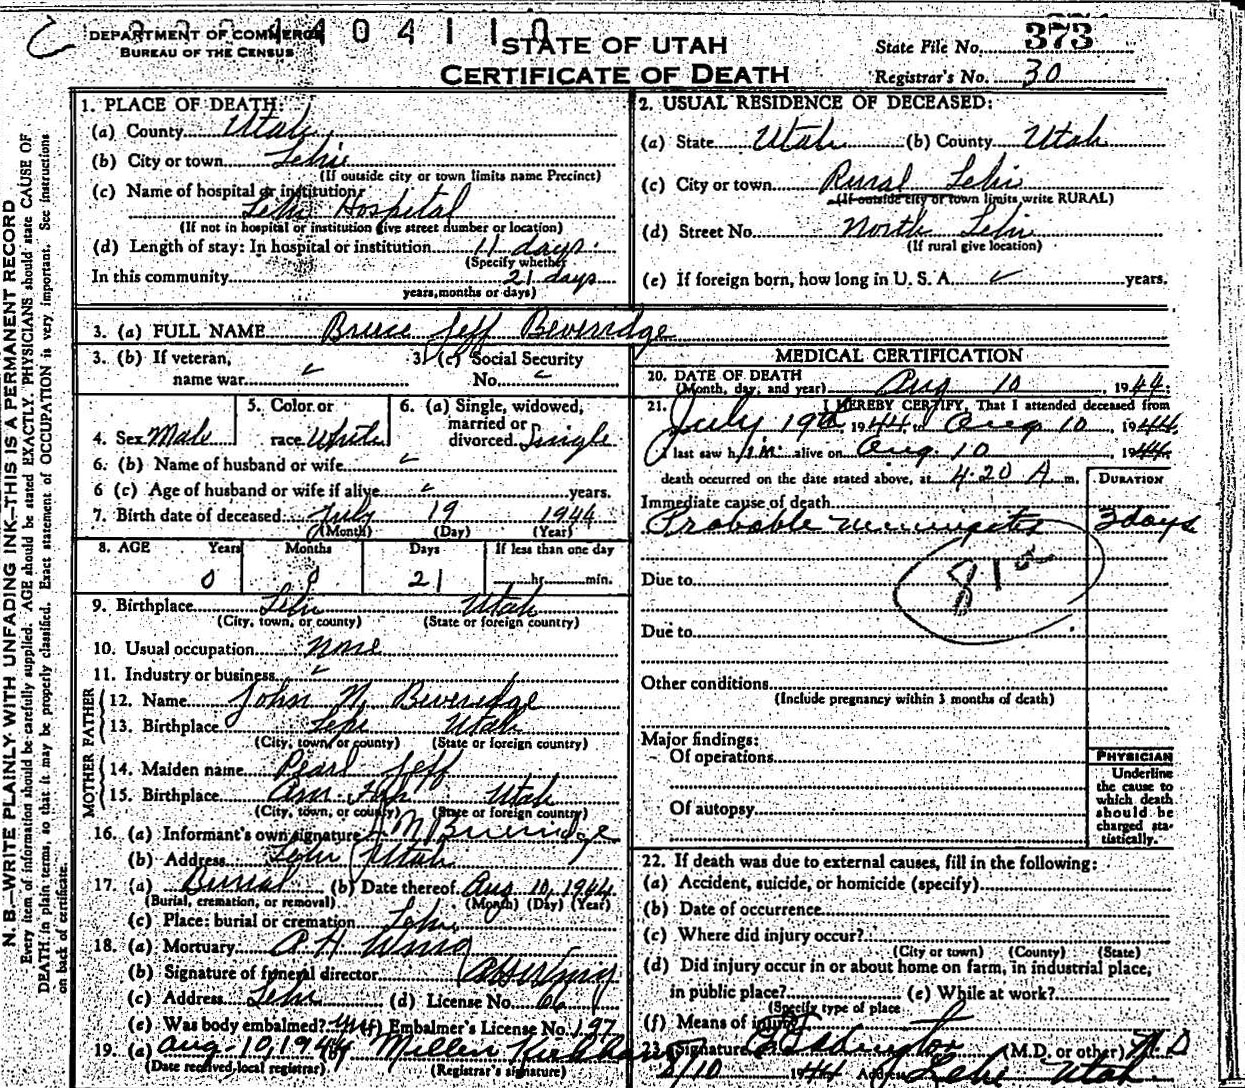 DEPARTMENT OF COMMERCE
BUREAU OF THE CENSUS
4404110
STATE OF UTAH
CERTIFICATE OF DEATH
State File No. 373
Registrar's No. 30
N. B.—WRITE PLAINLY WITH UNFADING INK—THIS IS A PERMANENT RECORD
Every item of information should be carefully supplied. AGE should be stated EXACTLY. PHYSICIANS should state CAUSE OF
DEATH in plain terms, so that it may be properly classified. Exact statement of OCCUPATION is very important. See instructions
on back of certificate.
1. PLACE OF DEATH:
(a) County Utah
(b) City or town Lehi
(If outside city or town limits name Precinct)
(c) Name of hospital or institution:
Lehi Hospital
(If not in hospital or institution give street number or location)
(d) Length of stay: In hospital or institution 11 days
(Specify whether
In this community 21 days
years, months or days)
2. USUAL RESIDENCE OF DECEASED:
(a) State Utah (b) County Utah
(c) City or town Rural Lehi
(If outside city or town limits write RURAL)
(d) Street No. North Lehi
(If rural give location)
(e) If foreign born, how long in U. S. A. years.
3. (a) FULL NAME Bruce Jeff Beveridge
3. (b) If veteran,
name war
3. (c) Social Security
No.
4. Sex Male
5. Color or
race White
6. (a) Single, widowed,
married or
divorced Single
6. (b) Name of husband or wife
6 (c) Age of husband or wife if alive years.
7. Birth date of deceased July 19 1944
(Month) (Day) (Year)
8. AGE Years Months Days If less than one day
0 0 21 hr. min.
9. Birthplace Lehi Utah
(City, town, or county) (State or foreign country)
10. Usual occupation none
11. Industry or business
FATHER
12. Name John N. Beveridge
13. Birthplace Lehi Utah
(City, town, or county) (State or foreign country)
MOTHER
14. Maiden name Pearl Jeff
15. Birthplace Am. Utah
(City, town, or county) (State or foreign country)
16. (a) Informant's own signature Beveridge
(b) Address Lehi Utah
17. (a) Burial (b) Date thereof Aug 10, 1944
(Burial, cremation, or removal) (Month) (Day) (Year)
(c) Place: burial or cremation Lehi
18. (a) Mortuary A H Wing
(b) Signature of funeral director
(c) Address Lehi (d) License No. 66
(e) Was body embalmed? (f) Embalmer's License No. 197
19. (a) Aug-10, 1944 (b) Millen
(Date received local registrar) (Registrar's signature)
MEDICAL CERTIFICATION
20. DATE OF DEATH
(Month, day, and year) Aug 10, 1944
21. I HEREBY CERTIFY, That I attended deceased from
July 19th, 1944, to Aug 10, 1944
I last saw him alive on Aug. 10 1944
death occurred on the date stated above, at 4:20 A m.
DURATION
Immediate cause of death
Probable meningitis 3 days
81
Due to
Due to
Other conditions
(Include pregnancy within 3 months of death)
Major findings:
Of operations
Of autopsy
PHYSICIAN
Underline
the cause to
which death
should be
charged sta-
tistically.
22. If death was due to external causes, fill in the following:
(a) Accident, suicide, or homicide (specify)
(b) Date of occurrence
(c) Where did injury occur?
(City or town) (County) (State)
(d) Did injury occur in or about home on farm, in industrial place,
in public place? (e) While at work?
(Specify type of place
(f) Means of injury
23. Signature (M.D. or other) M.D
8/10 1944 Address Lehi Utah